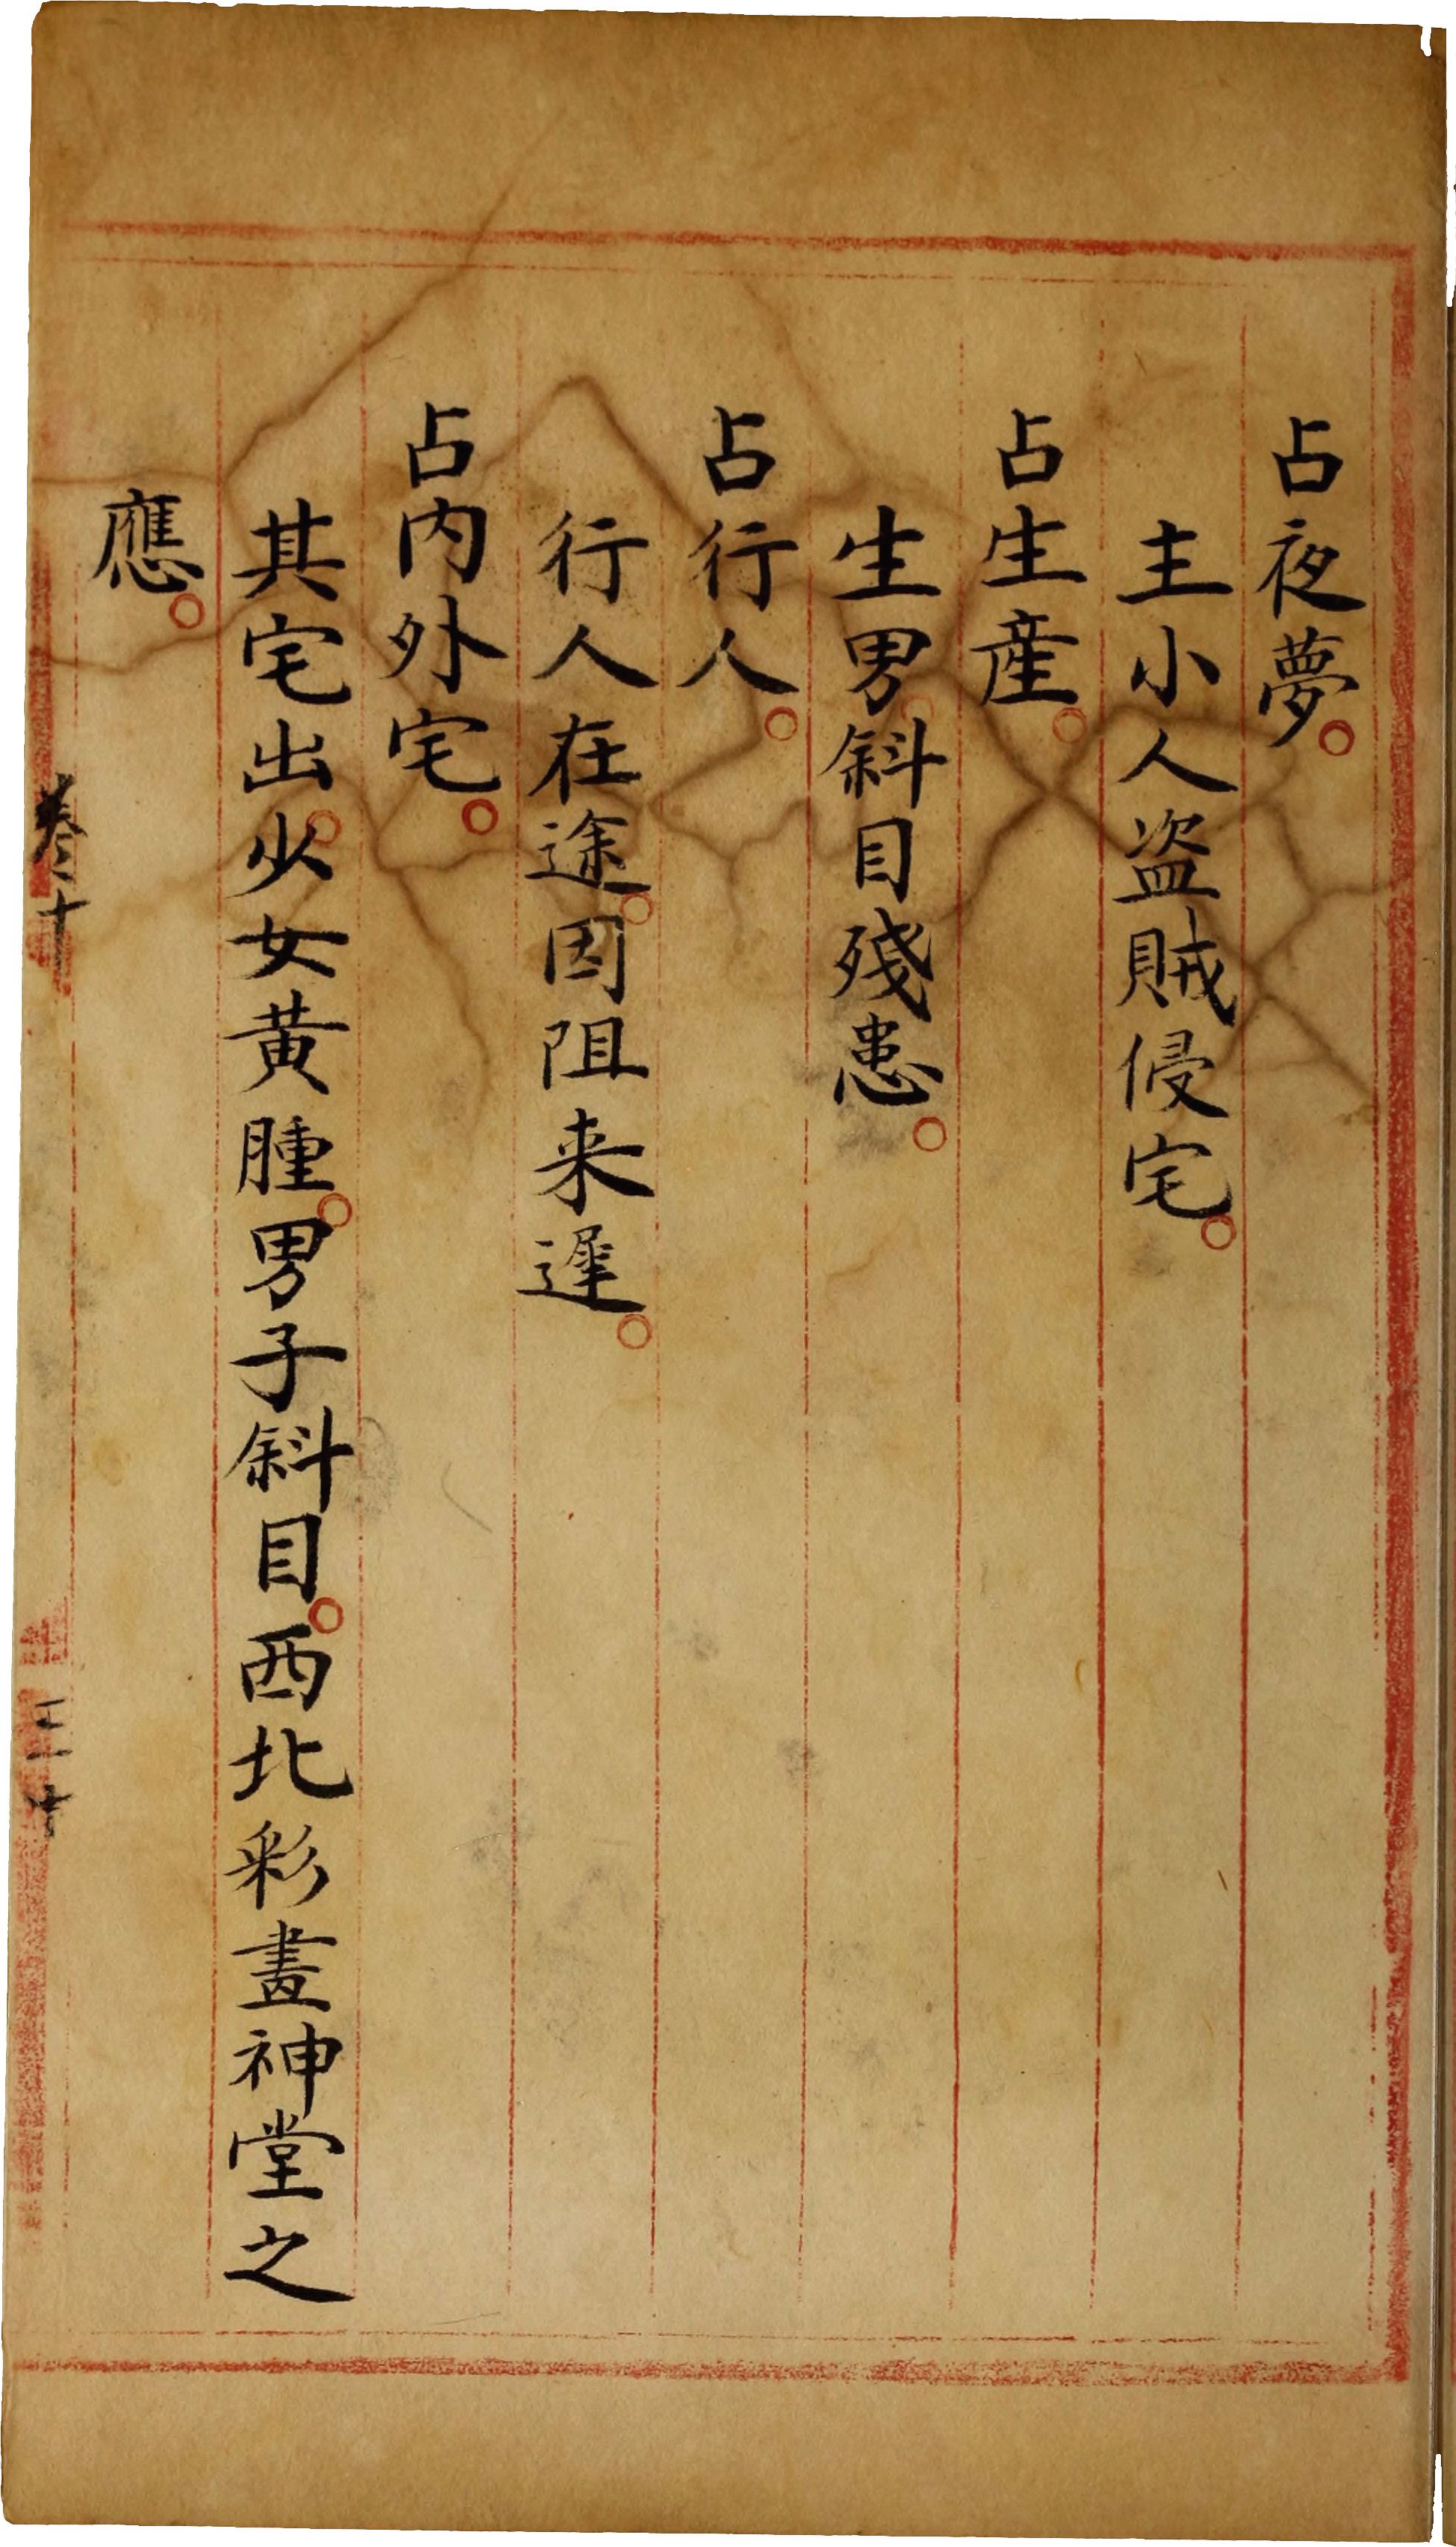 占夜夢。
主小人盗賊侵宅。
占生産。
生男。斜目殘患。
占行人。
行人在途。因阻来遲。
占内外宅。
其宅出。少女黄腫。男子斜目。西北彩畫神堂之
應。
卷十